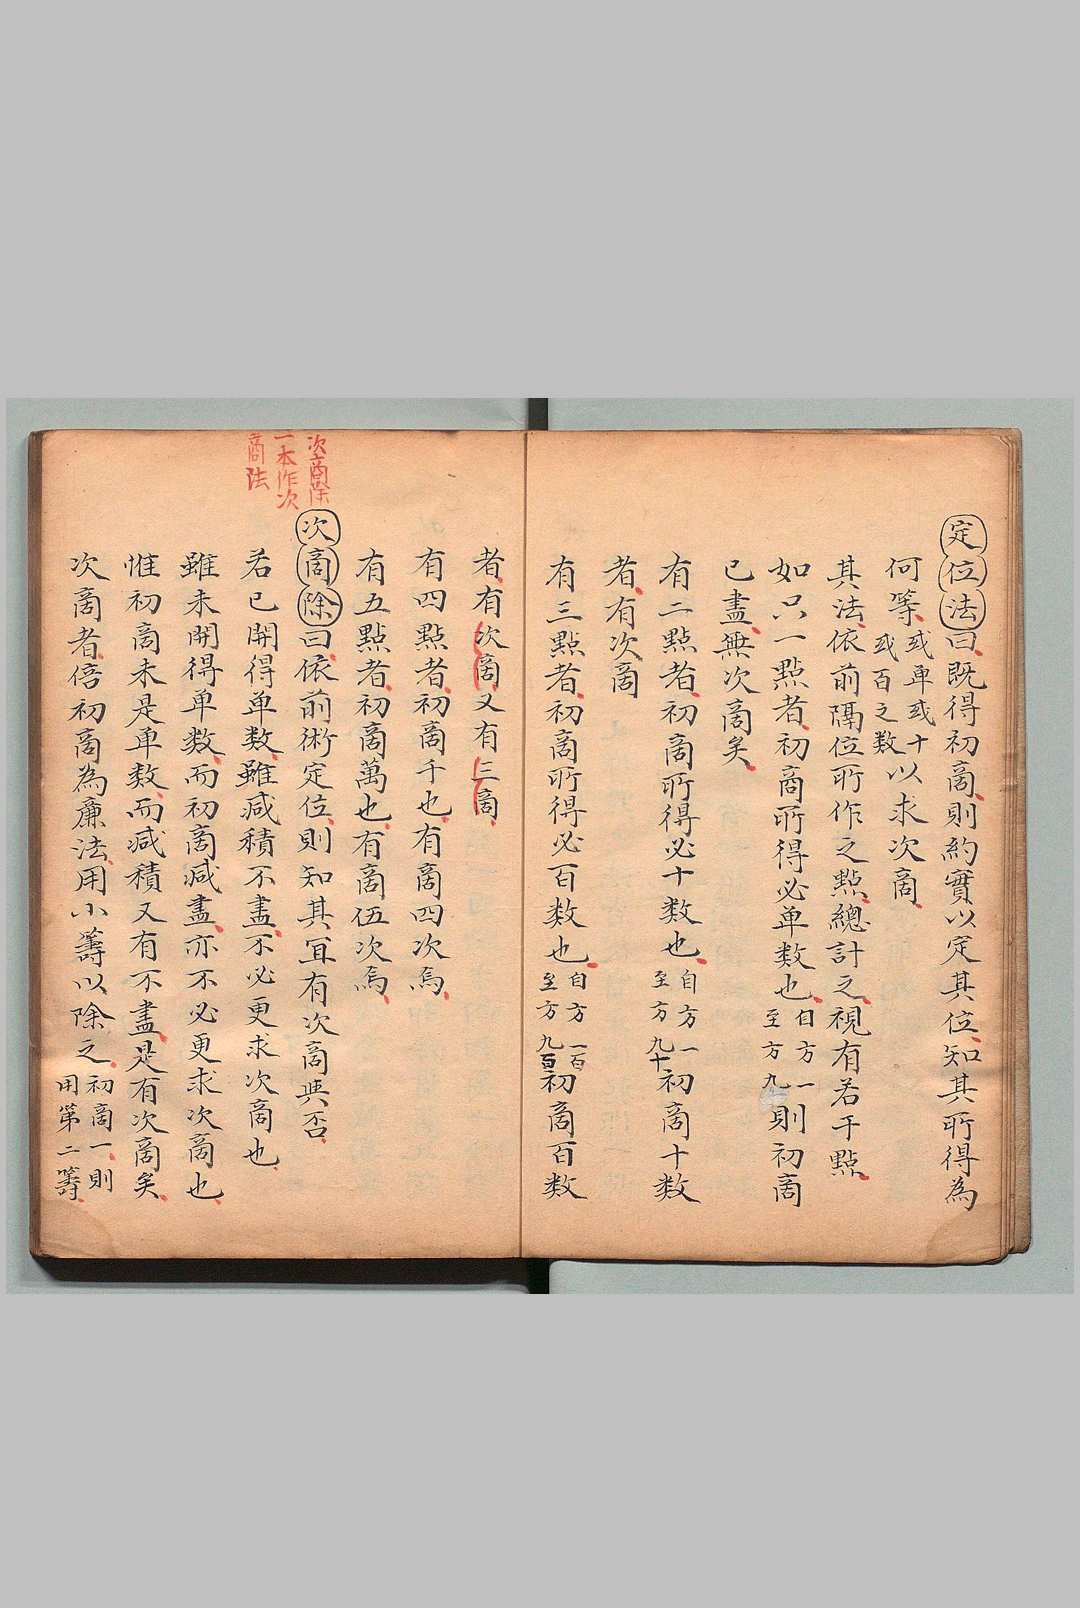 定位法曰既得初商則約實以定其位知其所得為
何等或单或十或百之数以求次商
其法依前隔位所作之點總計之視有若干點
如只一點者初商所得必单数也自方一至方九則初商
已盡無次商矣
有二點者初商所得必十数也自方一至方九十初商十数
者有次商
有三點者初商所得必百数也自方一百至方九百初商百数
者有次商又有三商
有四點者初商千也有商四次焉
有五點者初商萬也有商伍次焉
次商除曰依前術定位則知其宜有次商與否
若已開得单数雖減積不盡不必更求次商也
雖未開得单数而初商減盡亦不必更求次商也
惟初商未是单数而減積又有不盡是有次商矣
次商者倍初商為廉法用小籌以除之初商一則用第二籌
次商除
一本作次
商法